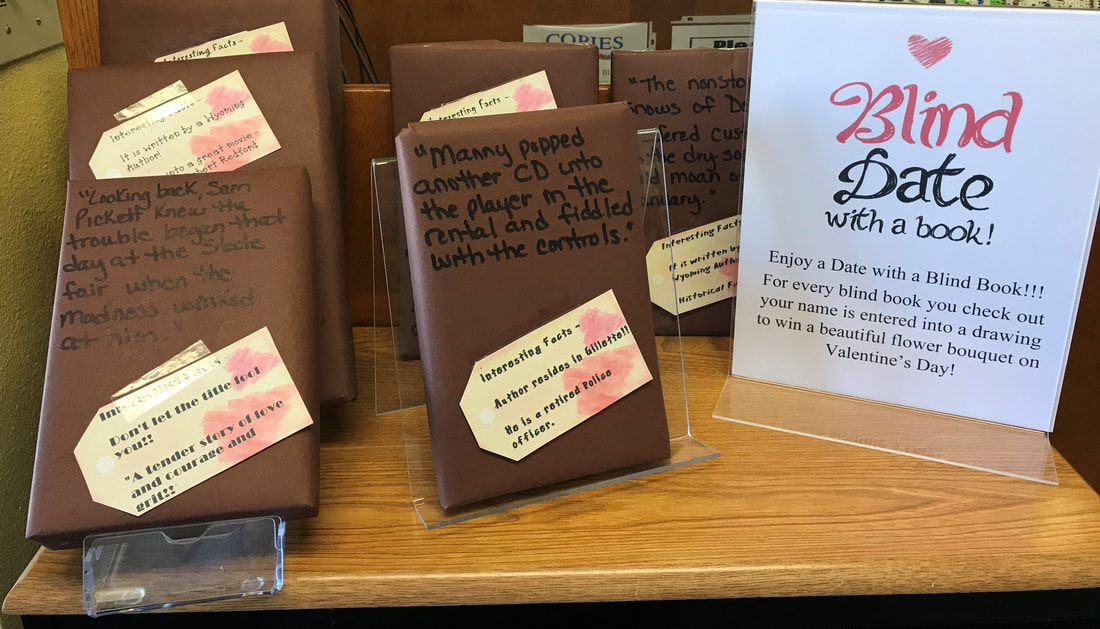 Interesting Facts -
Interesting Facts -
It is written by a Wyoming
Author!
into a great movie
Robert Redford
"Looking back, Sam
Pickett knew the
trouble began that
day at the State
fair when the
Madness winked
at him."
Don't let the title fool
you!!
"A tender story of love
and courage and
grit!!
COPIES
Interesting Facts -
"Manny popped
another CD into
the player in the
rental and fiddled
with the controls."
Interesting Facts -
Author resides in Gillette!!
He is a retired Police
officer.
"The nonstop
the dry-
and moan
Interesting Facts
It is written by
Wyoming Auth
Historical Fi
Blind
Date
with a book!
Enjoy a Date with a Blind Book!!!
For every blind book you check out
your name is entered into a drawing
to win a beautiful flower bouquet on
Valentine's Day!